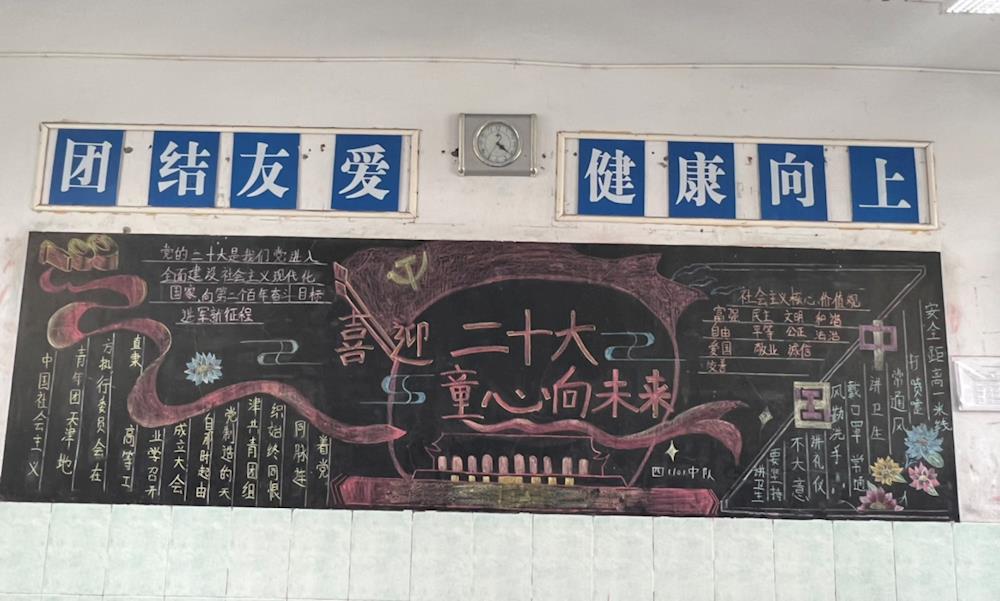 团结友爱
健康向上
党的二十大是我们党进入
全面建设社会主义现代化
国家,向第二个百年奋斗目标
进军新征程
喜迎二十大
童心向未来
中国社会主义
青年团天津地
方执行委员会在
直隶
高等工
业学召开
成立大会
自有时起由
党利造的天
津共青团组
织始终同恨
同脉连
着党
社会主义核心价值观
富强 民主 文明 和谐
自由 平等 公正 法治
爱国 敬业 诚信
友善
安全距离一米线
打喷嚏
常通风
讲卫生
戴口罩 常通
风勤洗手
讲礼仪
不大意
要坚持
讲卫生
中队